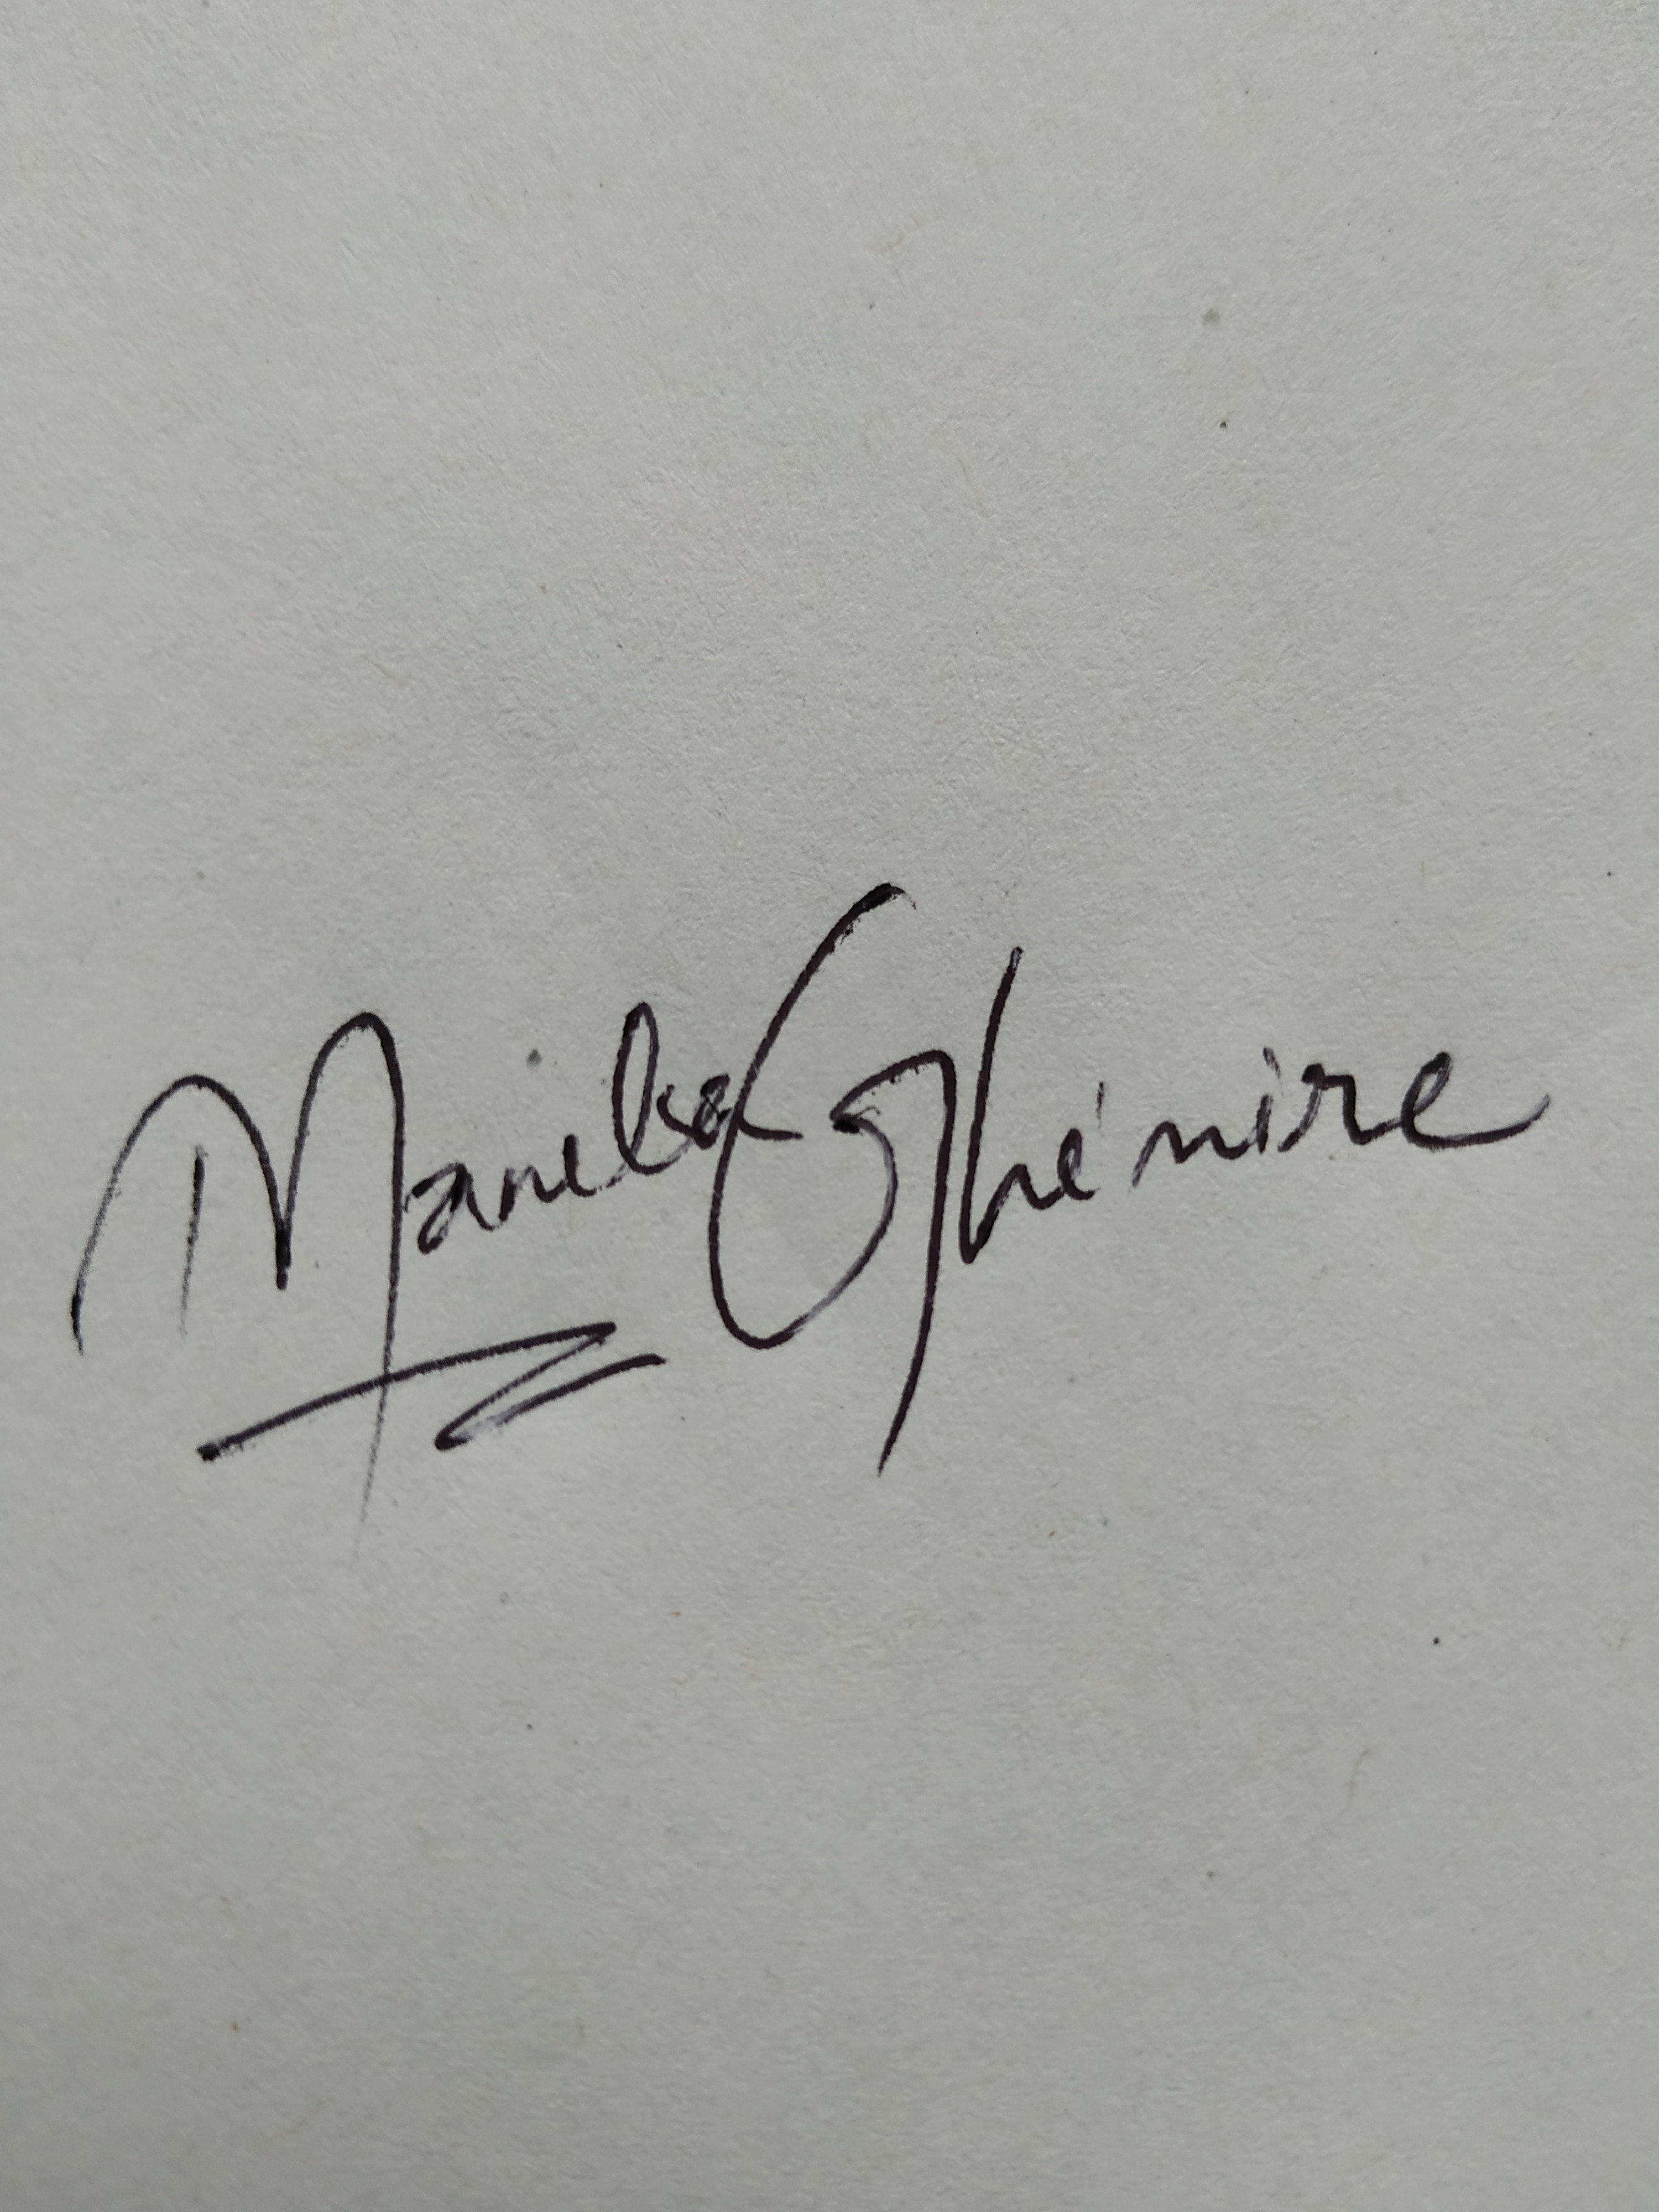 Manisa Ghimire